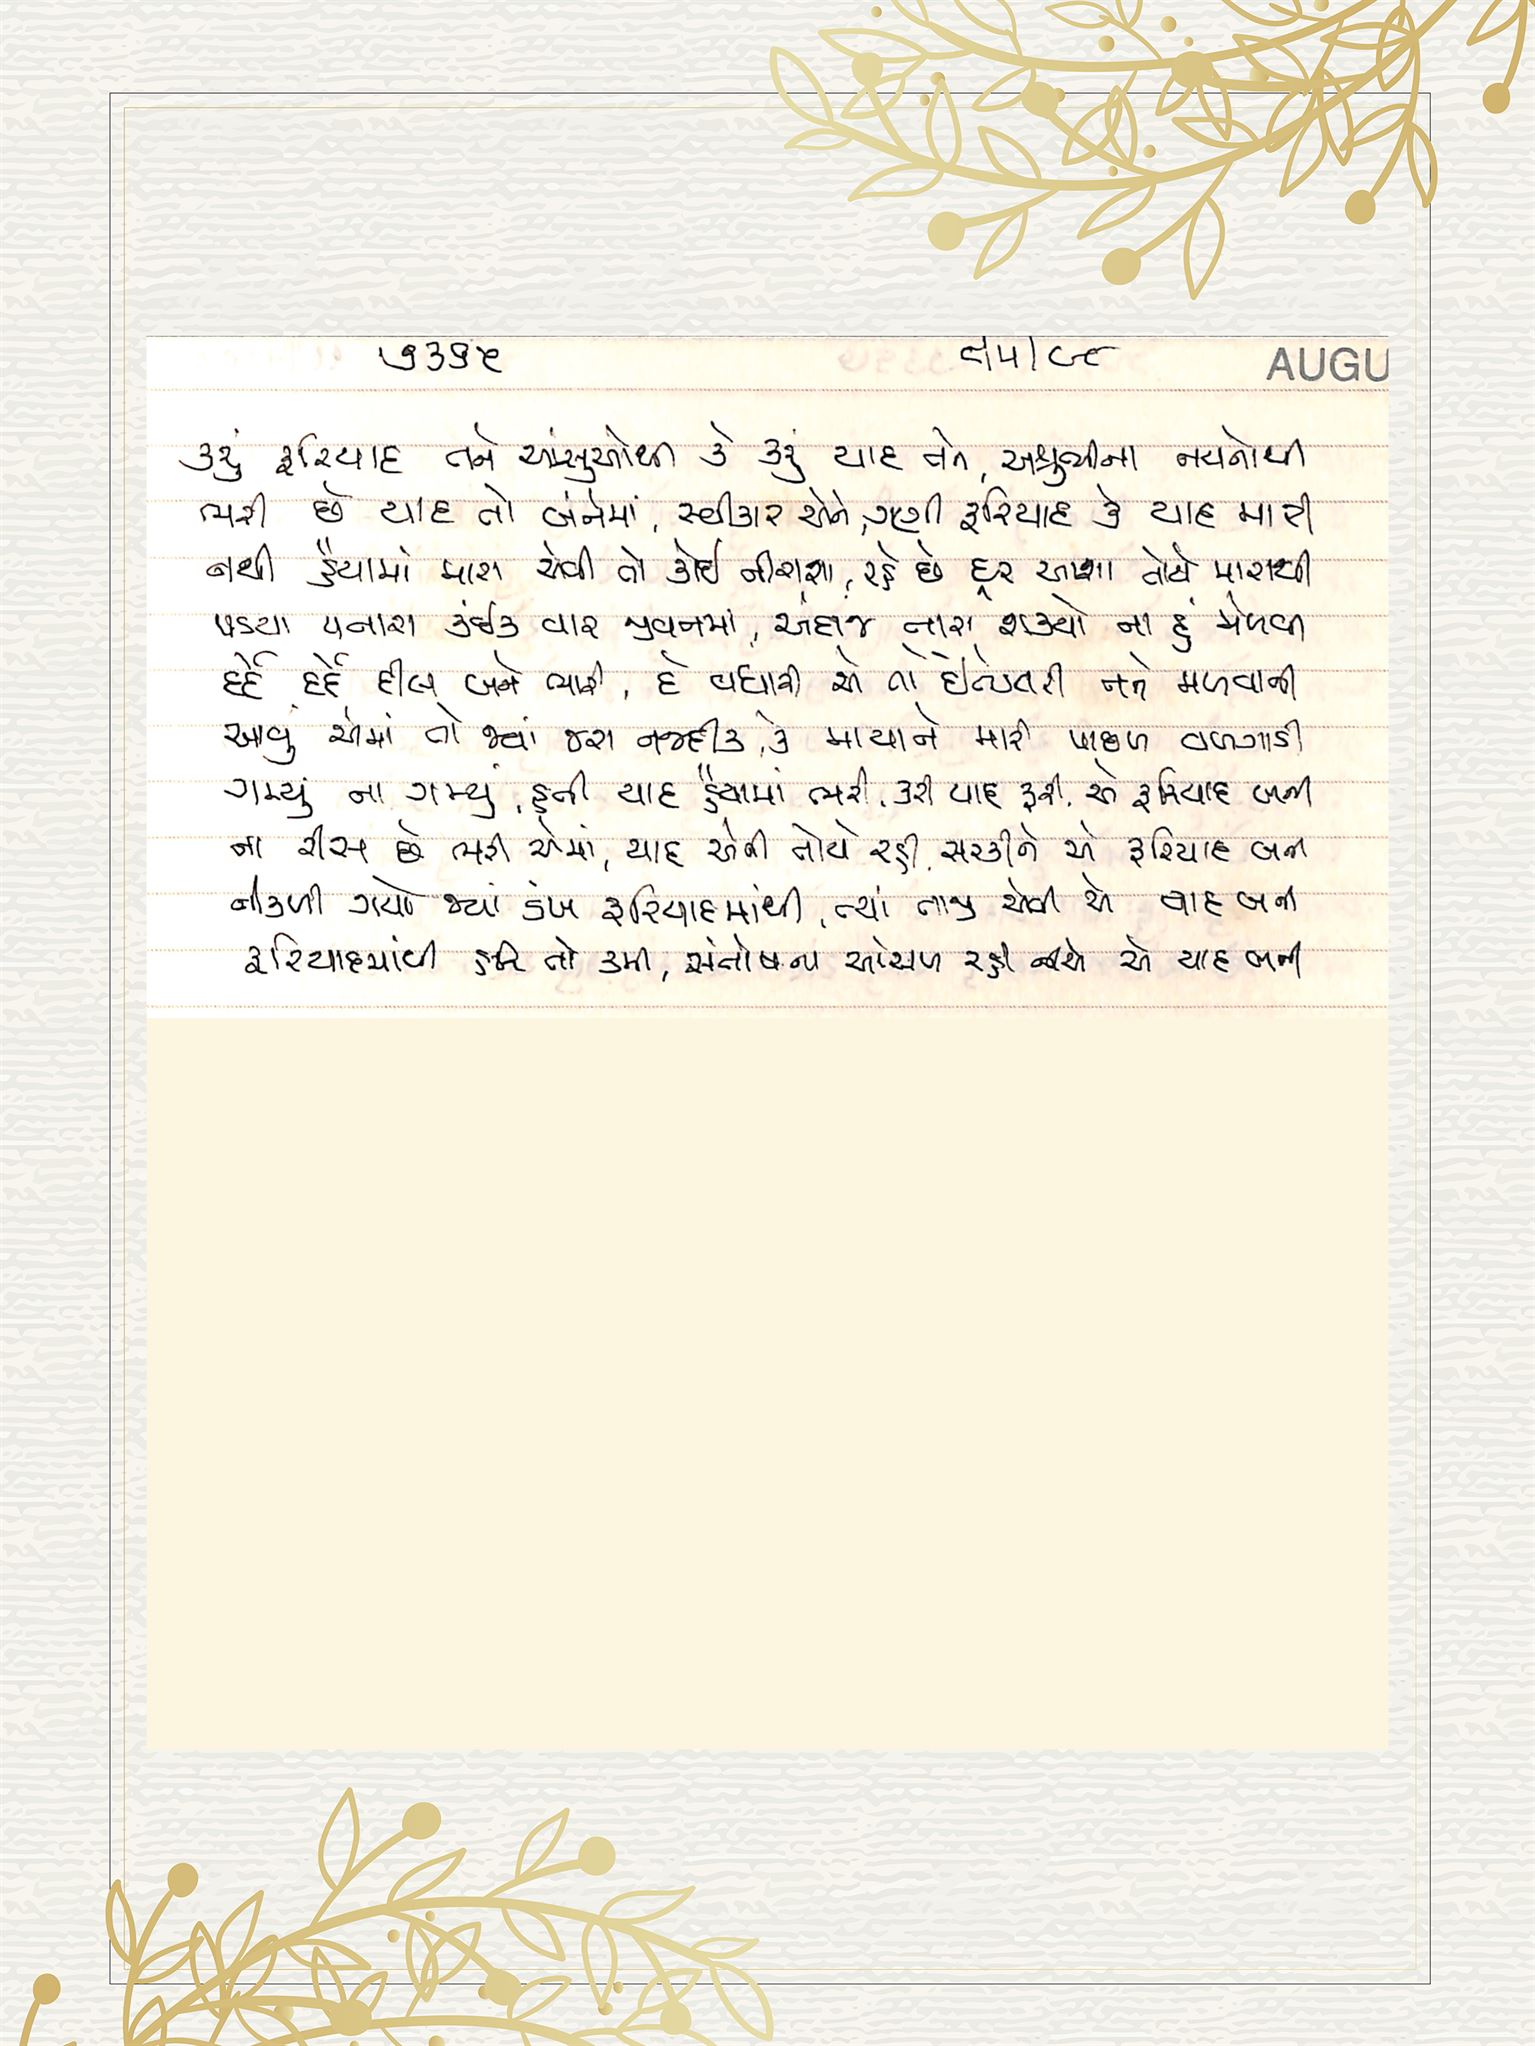 ૭૩૧૬ ૯|૫|૯૮ AUGU
કરું ફરિયાદ તને આંસુઓથી કે કરું યાદ તને, અશ્રુભીના નયનોથી
ભરી છે યાદ તો બંનેમાં, સ્વીકાર એને, ગણી ફરિયાદ કે યાદ મારી
નથી હૈયામાં મારા એવી તો કોઈ નીરાશા, રહે છે દૂર આશા તોયે મારાથી
પડયા પનારા કંઈક વાર જીવનમાં, અંદાજ તારો શક્યો ના હું મેળવી
દર્દે દર્દે દીલ બને ભારી, દે વધારી એ તો ઇંતેજારી તને મળવાની
આવું એમાં તો જ્યાં જરા નજદીક, કે માયાને મારી પાછળ વળગાડી
ગમ્યું ના ગમ્યું, હતી યાદ હૈયામાં ભરી, કરી યાદ ફરી, એ ફરિયાદ બની
ના રીસ છે ભરી એમાં, યાદ એવી તોયે રહી, સરકીને એ ફરિયાદ બની
નીકળી ગયો જ્યાં ડંખ ફરિયાદમાંથી, ત્યાં તાજી એવી એ યાદ બની
ફરિયાદમાંથી હતિ તો કમી, સંતોષના ઓસળ રહી એ યાદ બની